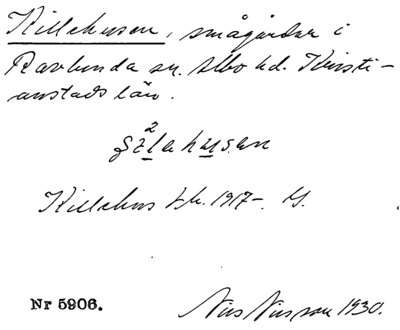 Killehusen, smågårdar i
Ravlunda sn. Albo hd. Kristi-
anstads län.
Killehus t.k. 1917-. G.
Nr 5906.
Nils Nilsson 1930.